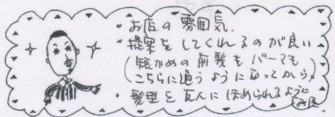 ・お店の雰囲気。
・提案をしてくれるのが良い
(短かめの前髪もパーマも
こちらに違うようになってから)
・髪型を友人にほめられるように